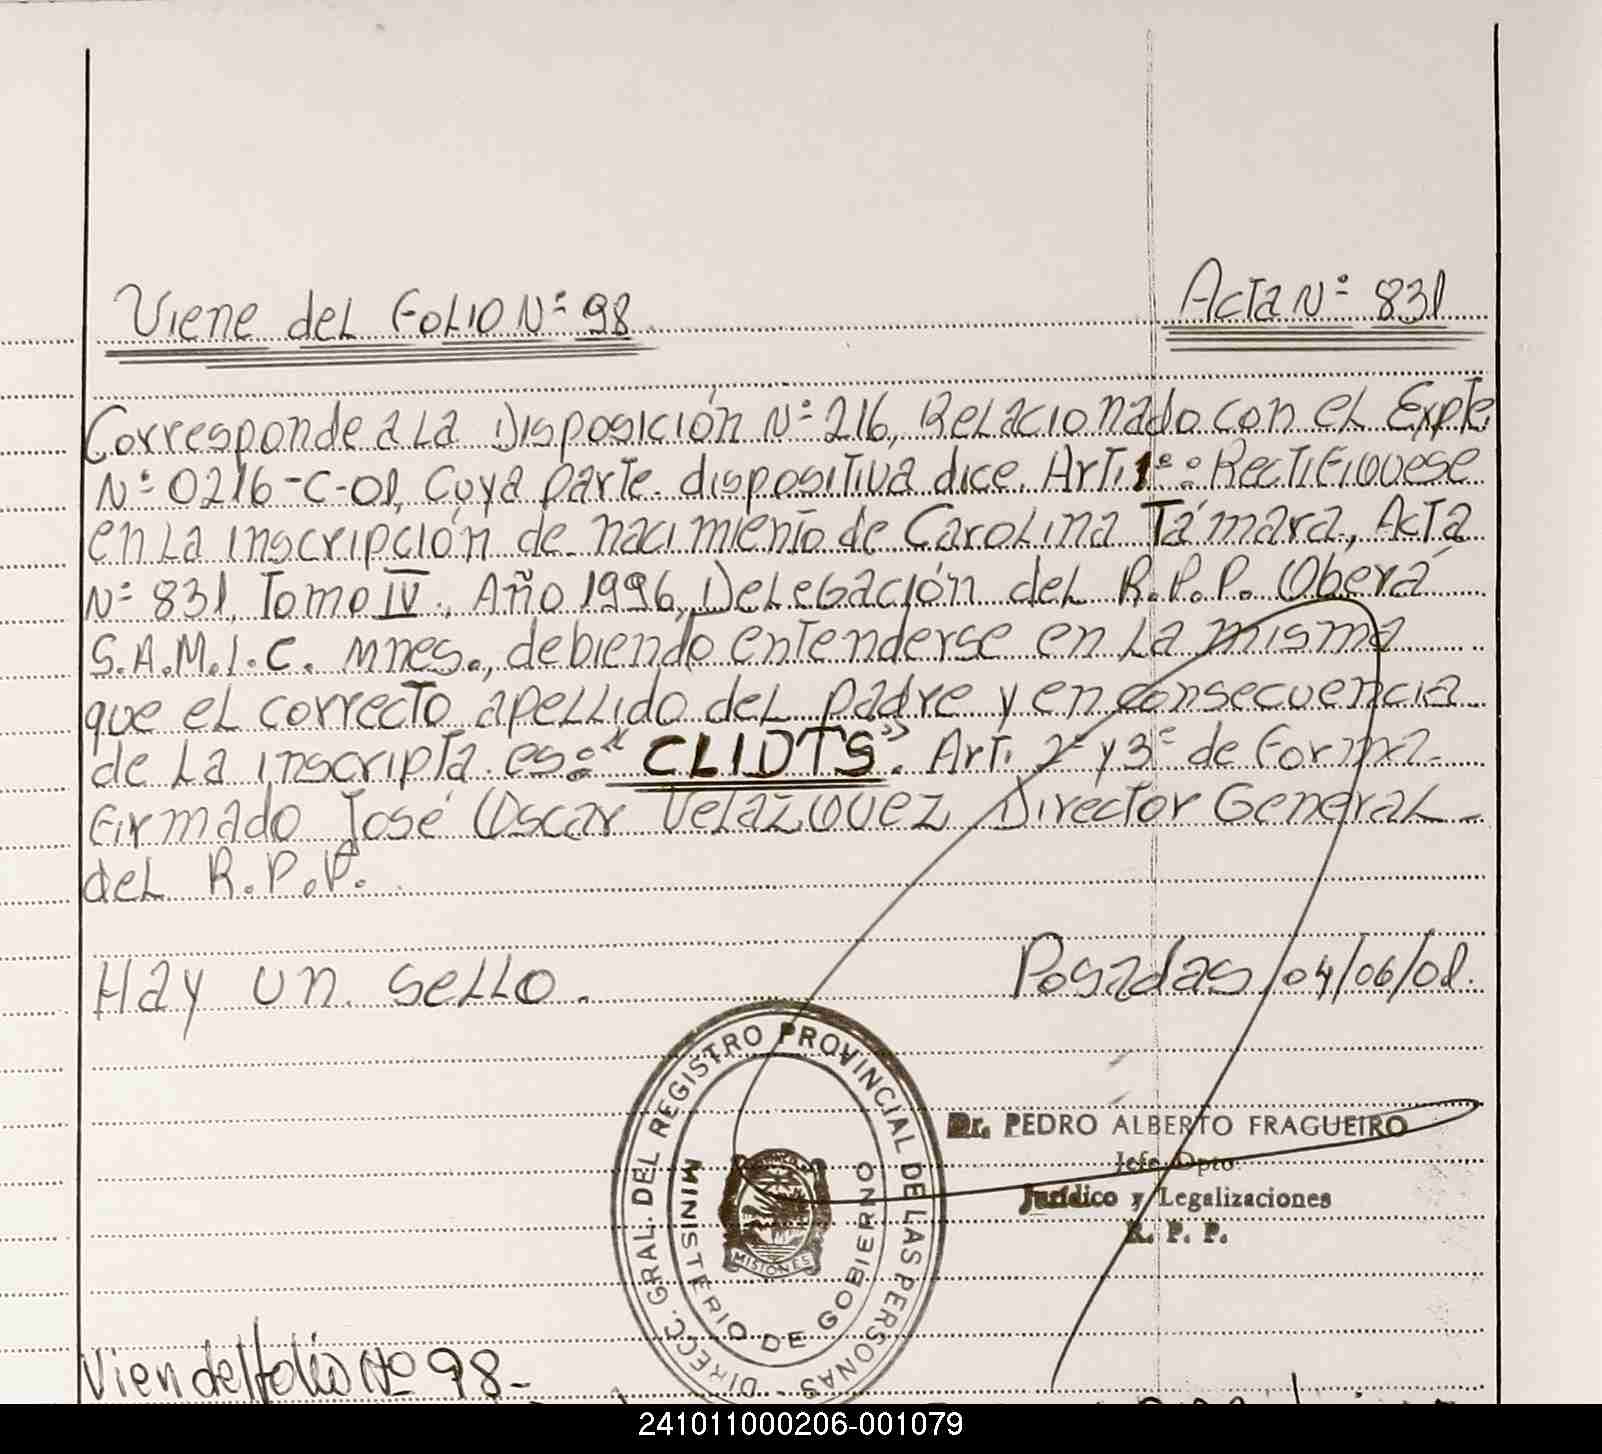 Viene del Folio Nº 98
Acta Nº 831
Corresponde a la Disposición Nº 216, Relacionado con el Expte.
Nº 0216-C-01, cuya parte dispositiva dice. Art. 1º: Rectifiquese
en la inscripción de nacimiento de Carolina Támara, Acta
Nº 831, Tomo IV, Año 1996, Delegación del R.P.P. Oberá
S.A.M.I.C. Mnes., debiendo entenderse en la misma
que el correcto apellido del padre y en consecuencia
de la inscripta es: "CLIDTS". Art. 2º y 3º de forma.
Firmado José Oscar Velazquez Director General
del R.P.P.
Hay un sello.
Posadas 04/06/01.
DIRECC. GRAL. DEL REGISTRO PROVINCIAL DE LAS PERSONAS
MINISTERIO DE GOBIERNO
MISIONES
Dr. PEDRO ALBERTO FRAGUEIRO
Jefe Dpto
Jurídico y Legalizaciones
R. P. P.
Vien del folio Nº 98-
241011000206-001079